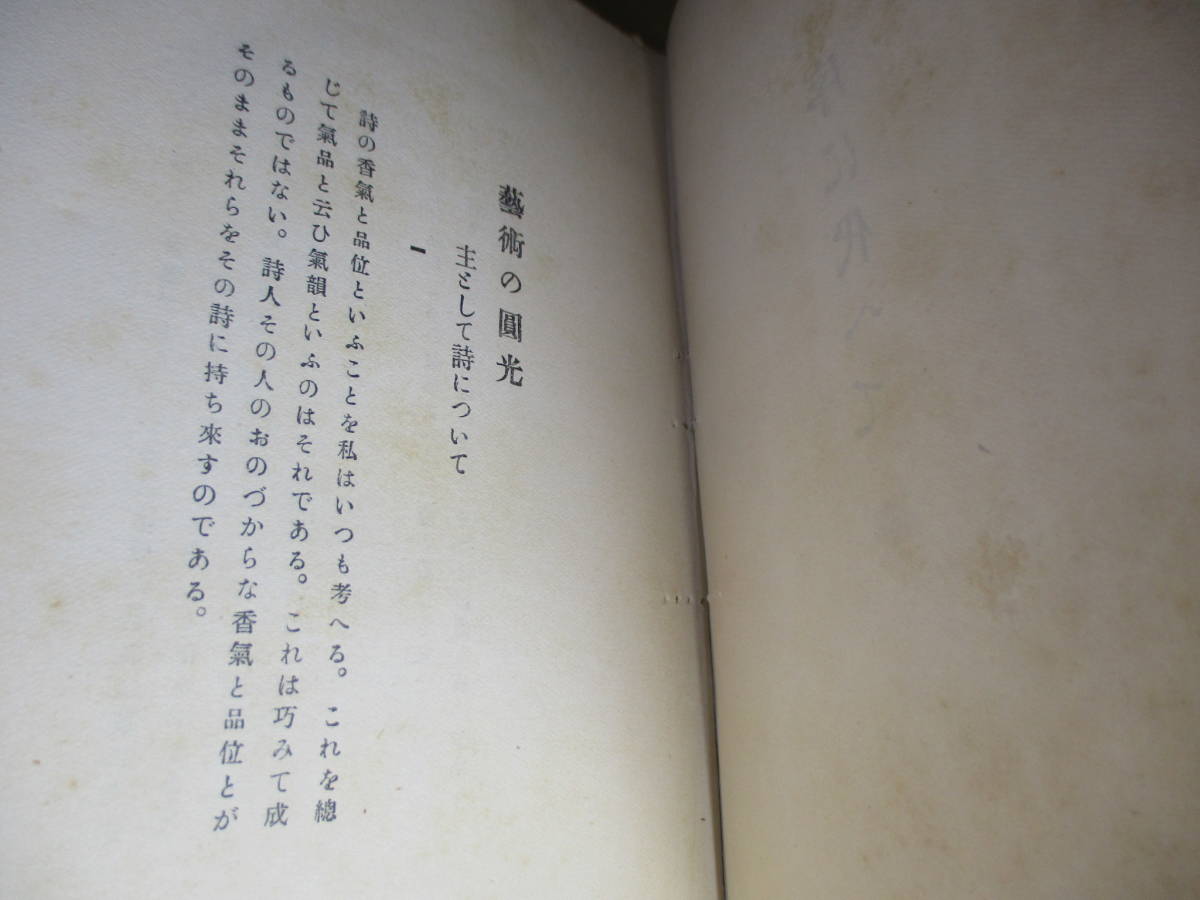 藝術の圓光
主として詩について
一
詩の香氣と品位といふことを私はいつも考へる。これを總
じて氣品と云ひ氣韻といふのはそれである。これは巧みて成
るものではない。詩人その人のおのづからな香氣と品位とが
そのままそれらをその詩に持ち來すのである。